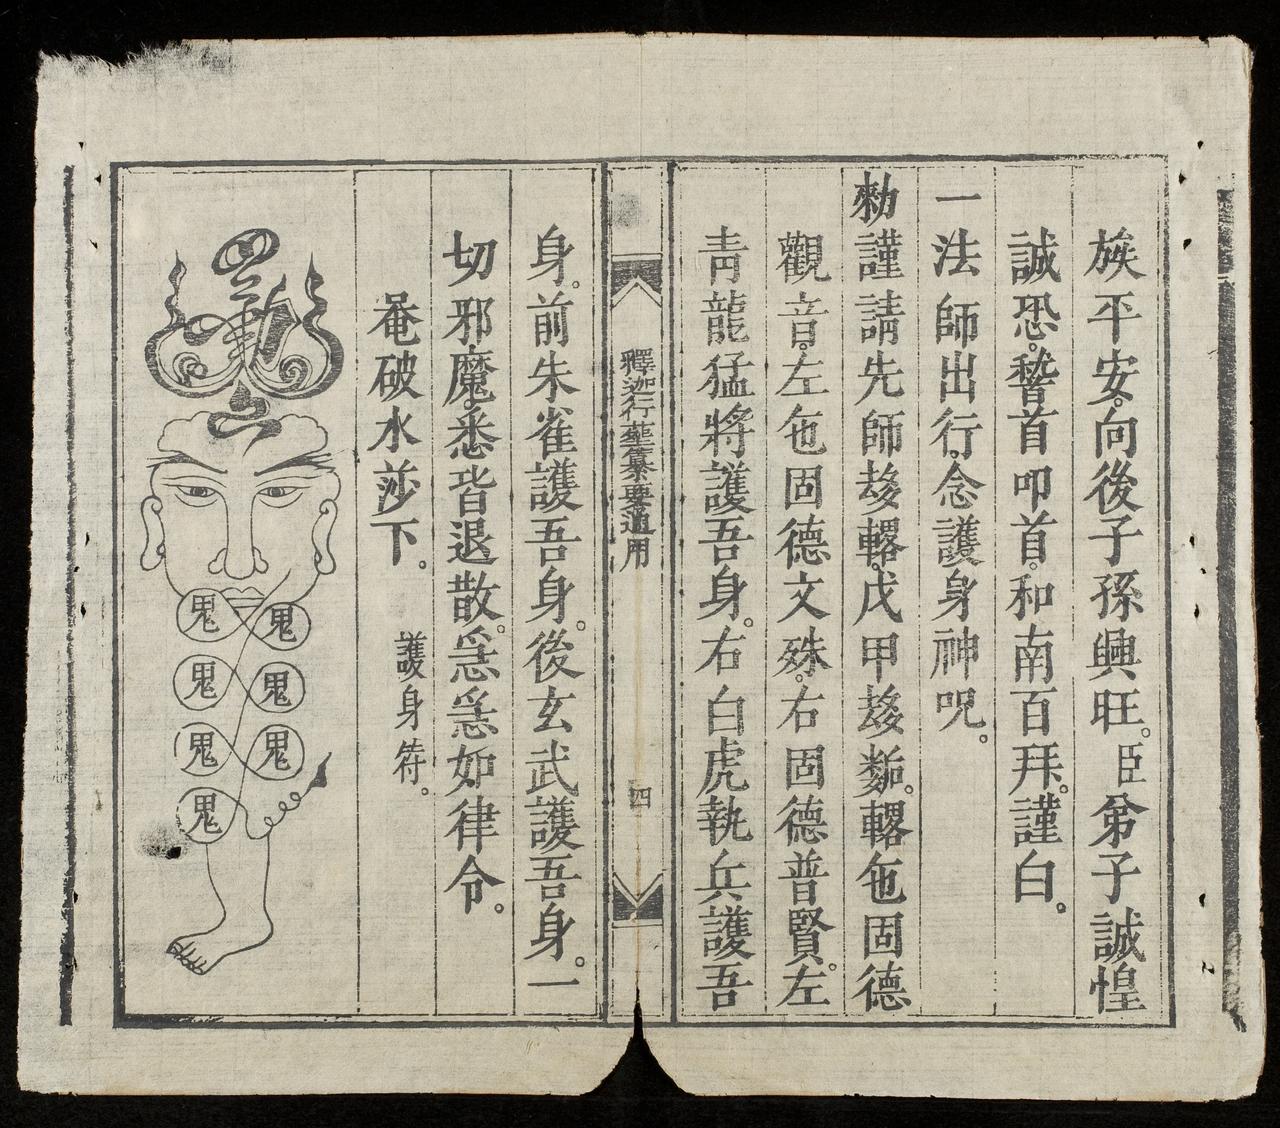 族平安。向後子孫興旺。臣弟子誠惶
誠恐。稽首叩首。和南百拜。謹白。
一法師出行。念護身神呪。
勑謹請先師𢫨轕。戊甲𢫨。轕㐌固德
觀音。左㐌固德文殊。右固德普賢。左
青龍猛將護吾身。右白虎執兵護吾
釋迦行藴纂要通用
四
身。前朱雀護吾身。後玄武護吾身。一
切邪魔。悉皆退散。急急如律令。
奄破水莎下。
護身符。
鬼
鬼
鬼
鬼
鬼
鬼
鬼